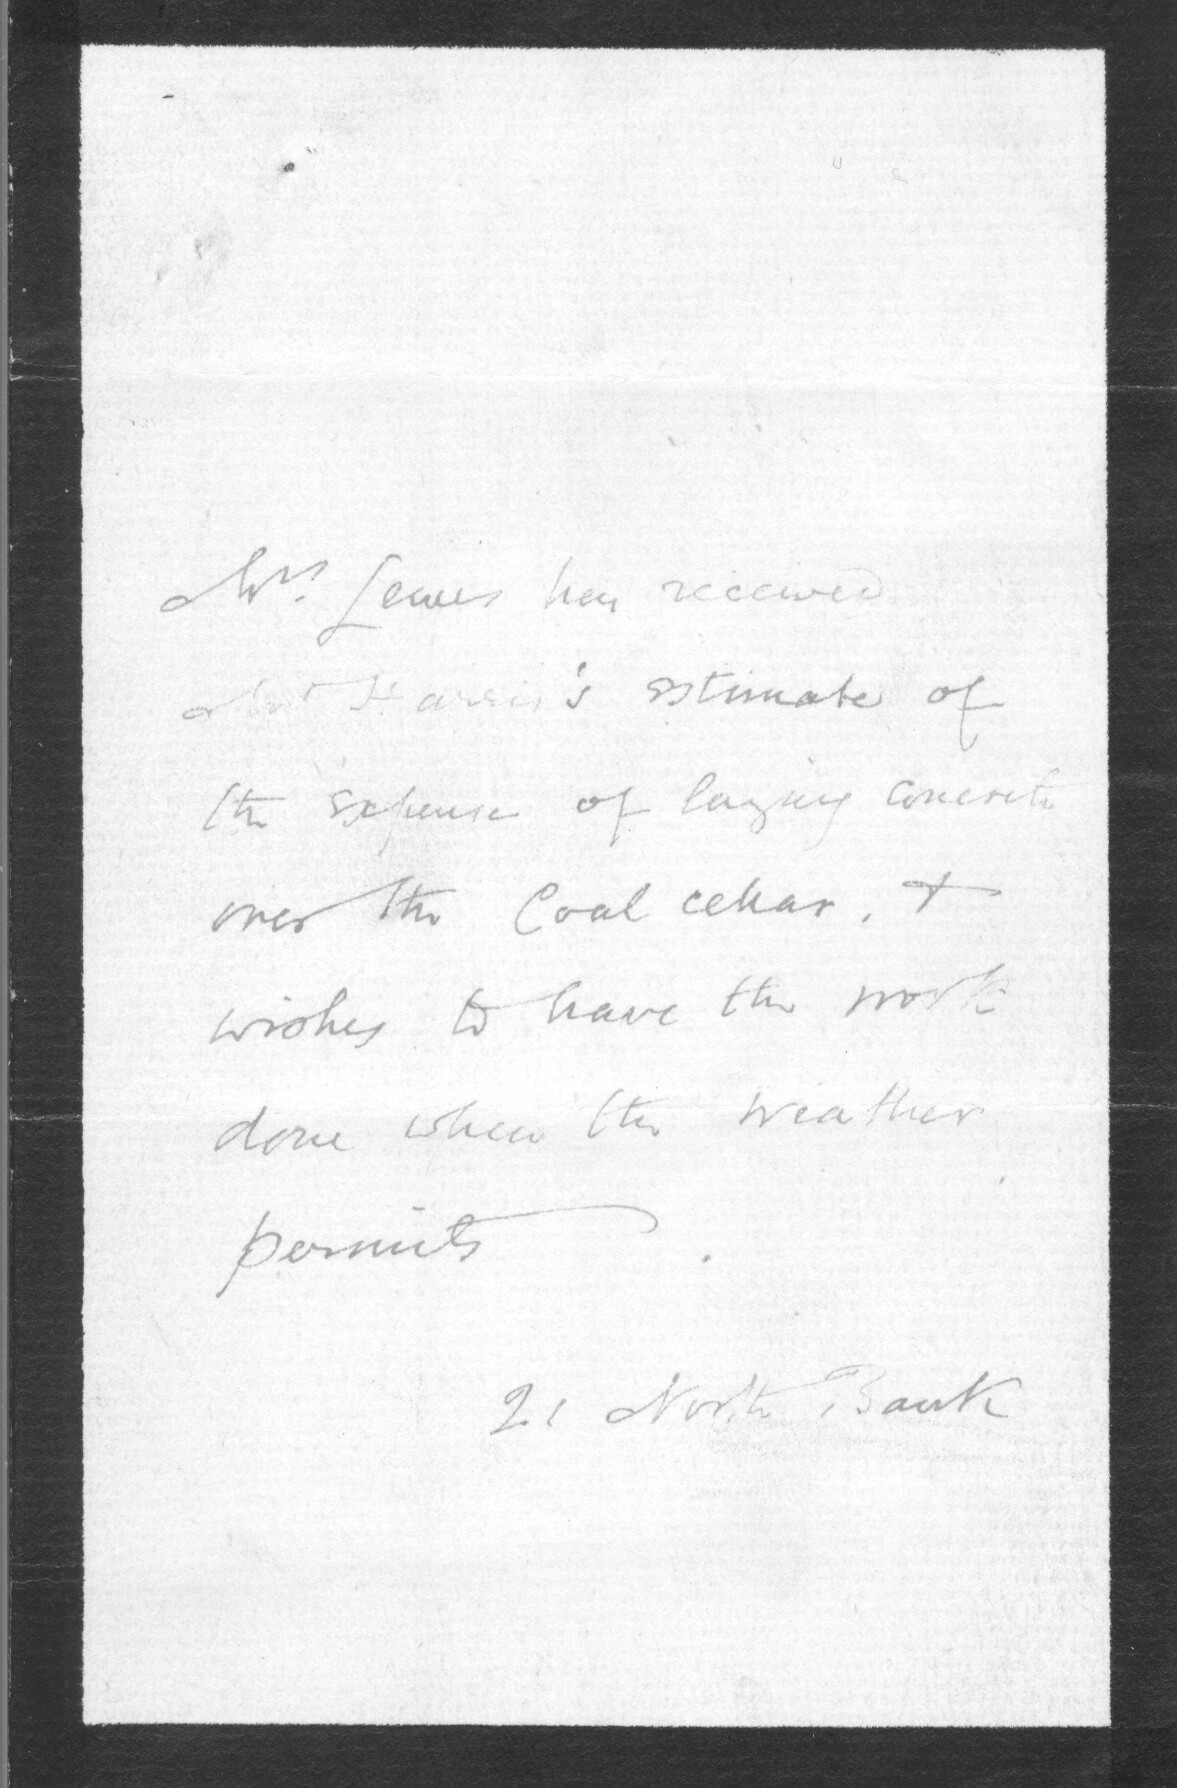 Mrs. Lewes has received
Mr Harris's estimate of
the expense of laying concrete
over the Coal cellar, &
wishes to have the work
done when the weather
permits.
21 North Bank